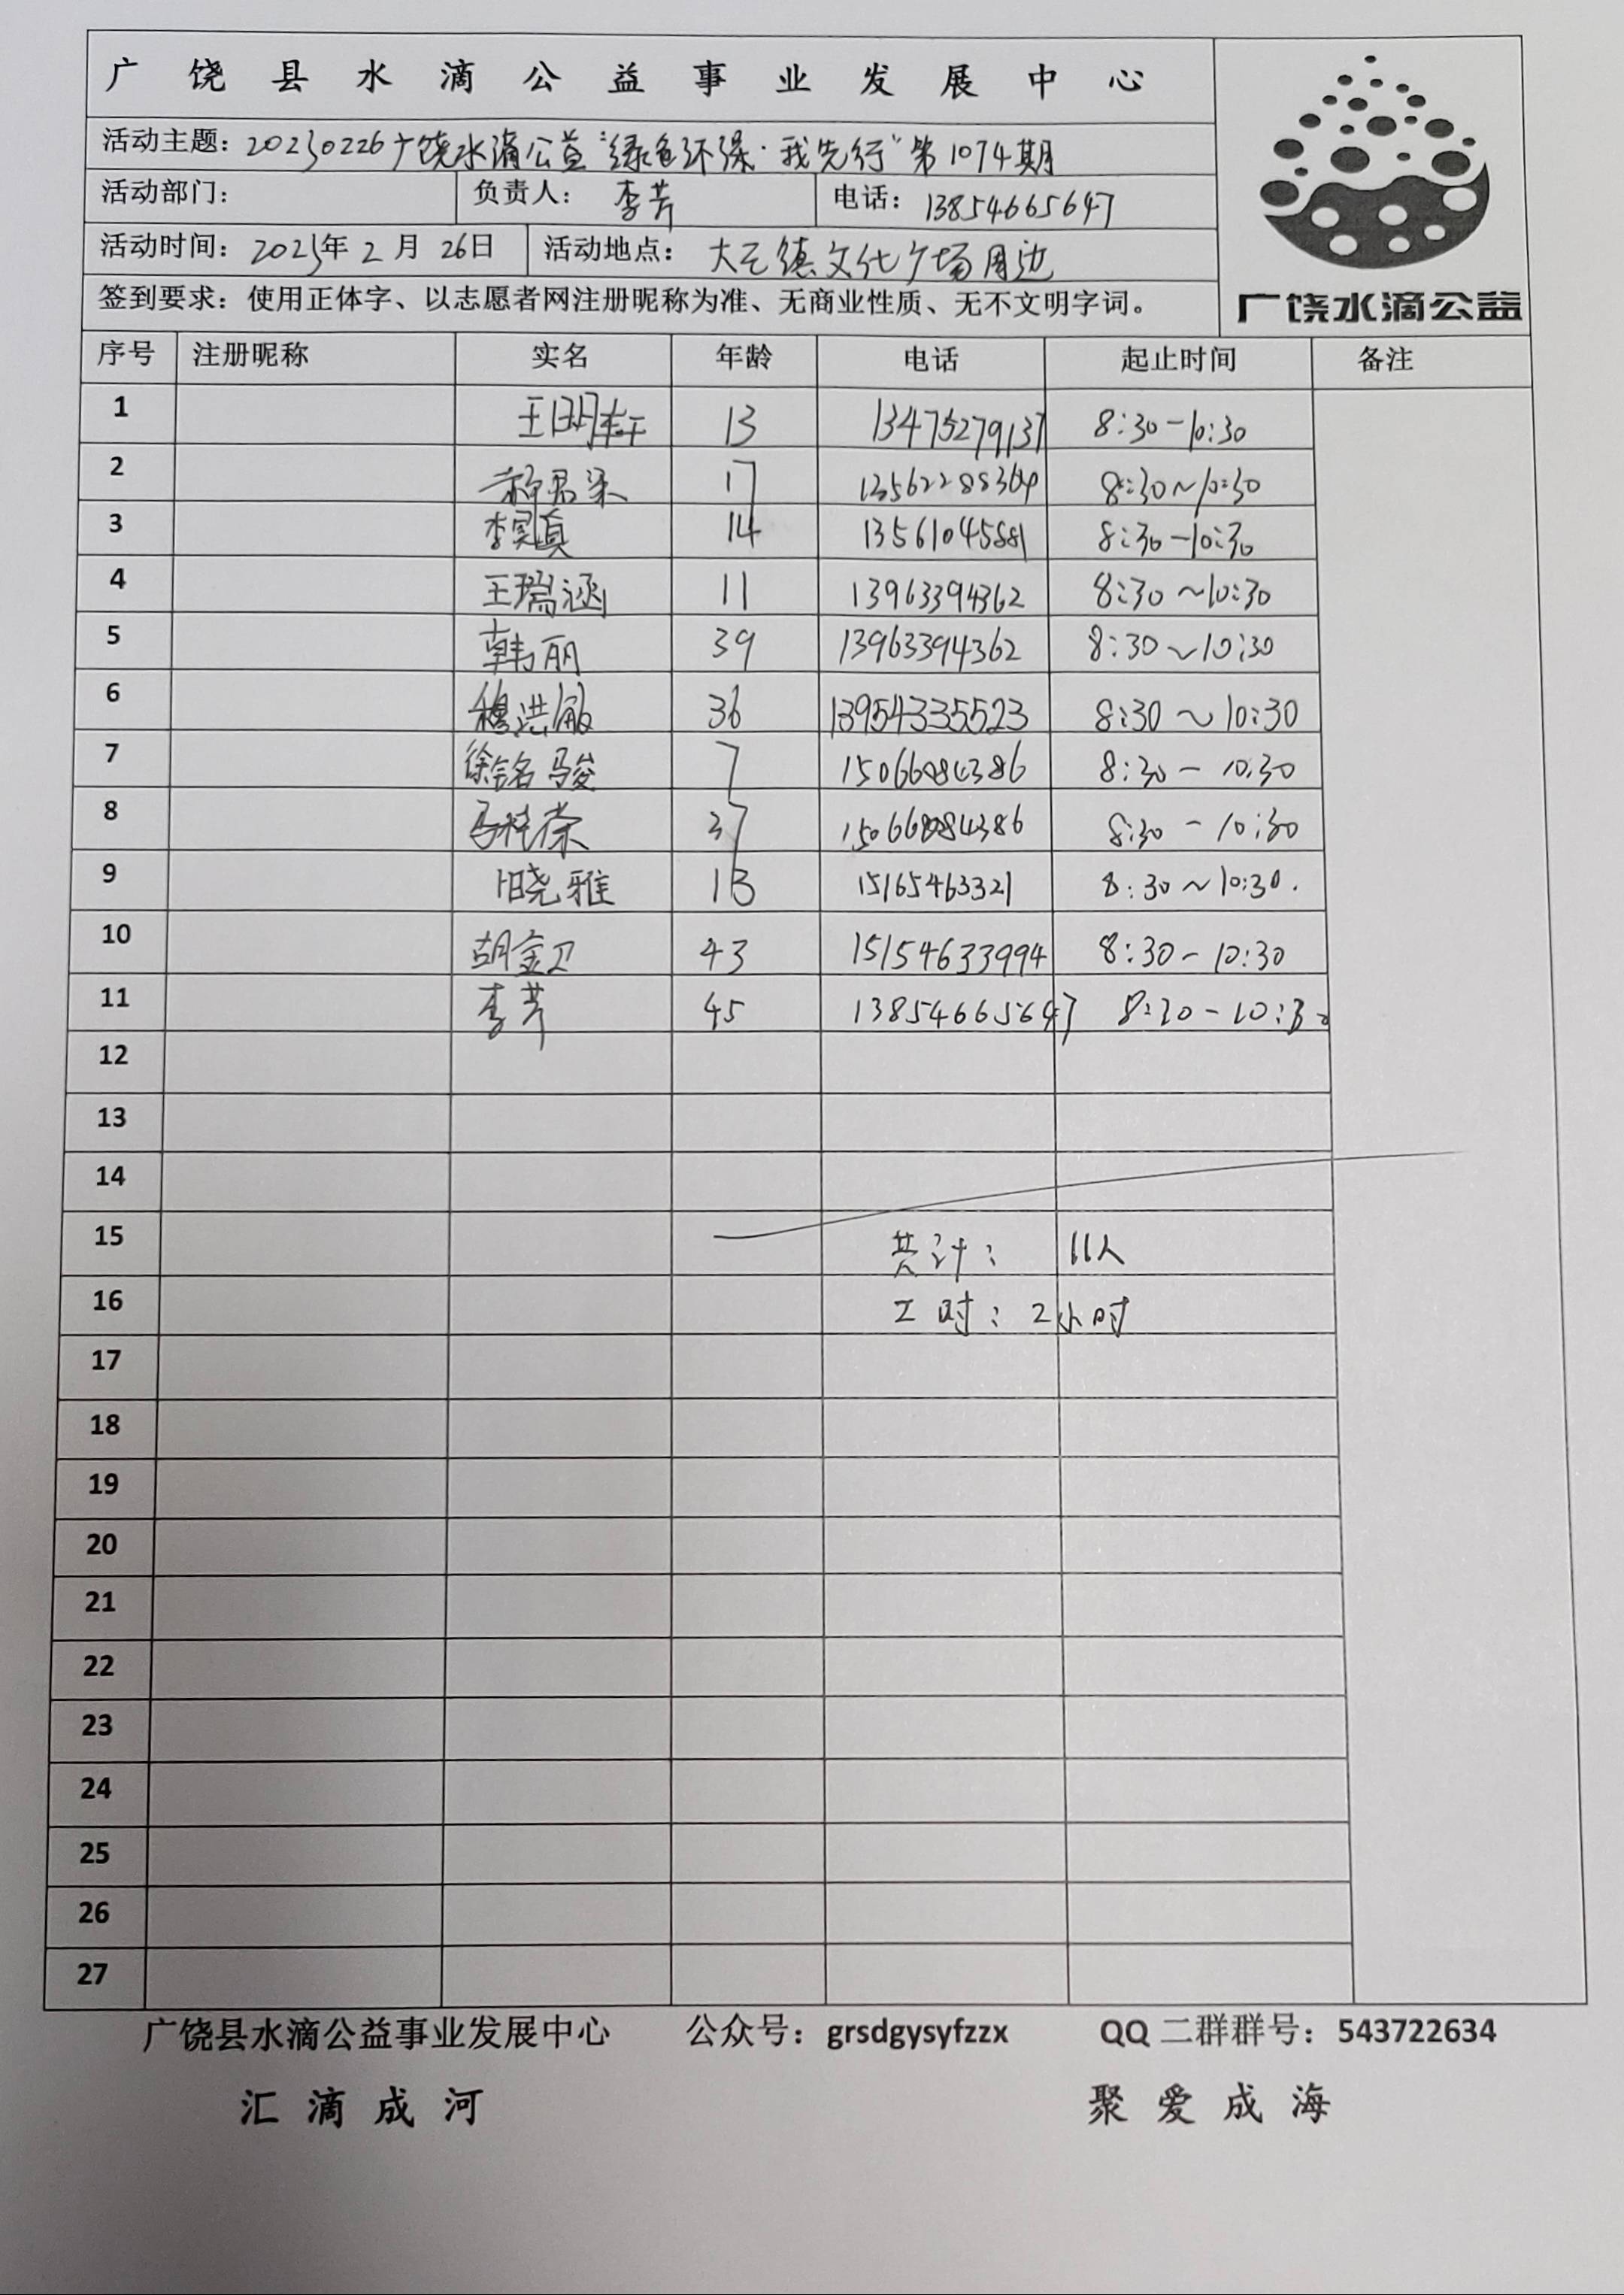 广饶县水滴公益事业发展中心
活动主题：20230226广饶水滴公益“绿色环保·我先行”第1074期
活动部门： 负责人：李芳 电话：13854665647
活动时间：2023年2月26日 活动地点：大王镇文化广场周边
签到要求：使用正体字、以志愿者网注册昵称为准、无商业性质、无不文明字词。
广饶水滴公益
序号 注册昵称 实名 年龄 电话 起止时间 备注
1 王明轩 13 13475279137 8:30-10:30
2 17 8:30~10:30
3 李昊真 14 13561045881 8:30-10:30
4 王瑞涵 11 13963394362 8:30~10:30
5 韩丽 39 13963394362 8:30~10:30
6 穆洪敏 36 13954335523 8:30~10:30
7 7 8:30-10:30
8 37 8:30-10:30
9 晓雅 13 15165463321 8:30~10:30.
10 胡金卫 43 15154633994 8:30-10:30
11 李芳 45 13854665647 8:30-10:30
12
13
14
15 共计：11人
16 工时：2小时
17
18
19
20
21
22
23
24
25
26
27
广饶县水滴公益事业发展中心 公众号：grsdgysyfzzx QQ二群群号：543722634
汇滴成河 聚爱成海